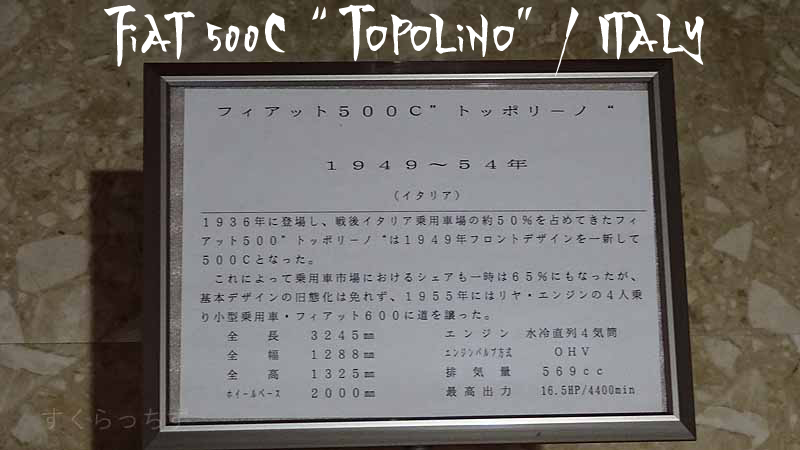 FiAT 500C “TOPOLiNO” / iTALY
フィアット５００Ｃ”トッポリーノ“
１９４９～５４年
（イタリア）
１９３６年に登場し、戦後イタリア乗用車場の約５０％を占めてきたフィ
アット５００”トッポリーノ“は１９４９年フロントデザインを一新して
５００Ｃとなった。
これによって乗用車市場におけるシェアも一時は６５％にもなったが、
基本デザインの旧態化は免れず、１９５５年にはリヤ・エンジンの４人乗
り小型乗用車・フィアット６００に道を譲った。
全　長　３２４５㎜　エンジン　水冷直列４気筒
全　幅　１２８８㎜　ｴﾝｼﾞﾝﾊﾞﾙﾌﾞ方式　ＯＨＶ
全　高　１３２５㎜　排　気　量　５６９ｃｃ
ﾎｲｰﾙﾍﾞｰｽ　２０００㎜　最高出力　16.5HP/4400min
すくらっちず